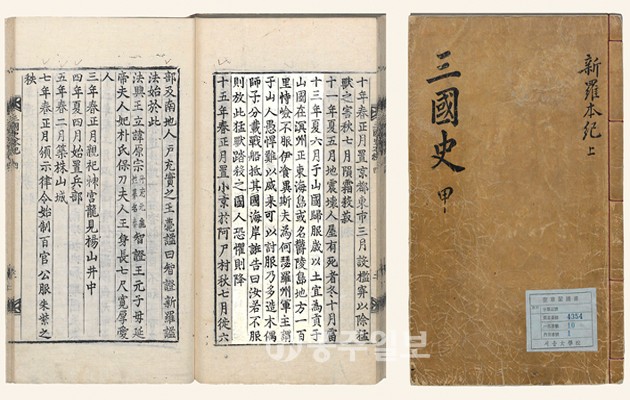 十年春正月置京都東市三月設檻穽以除猛
獸之害秋七月隕霜殺菽
十一年夏五月地震壞人屋有死者冬十月雷
十三年夏六月于山國歸服歲以土宜爲貢于
山國在溟州正東海島或名鬱陵島地方一百
里恃嶮不服伊飡異斯夫爲何瑟羅州軍主謂
于山人愚悍難以威來可以計服乃多造木偶
師子分載戰船抵其國海岸誑告曰汝若不服
則放此猛獸踏殺之國人恐懼則降
十五年春正月置小京於阿尸村秋七月徙六
部及南地人戶充實之王薨謚曰智證新羅謚
法始於此
法興王立諱原宗智證王元子母延
帝夫人妃朴氏保刀夫人王身長七尺寬厚愛
三年春正月親祀神宮龍見楊山井中
四年夏四月始置兵部
五年春二月築株山城
七年春正月頒示律令始制百官公服朱紫之
秩
新羅本紀 上
三國史 甲
4354
10
1
서울大學校
광주일보